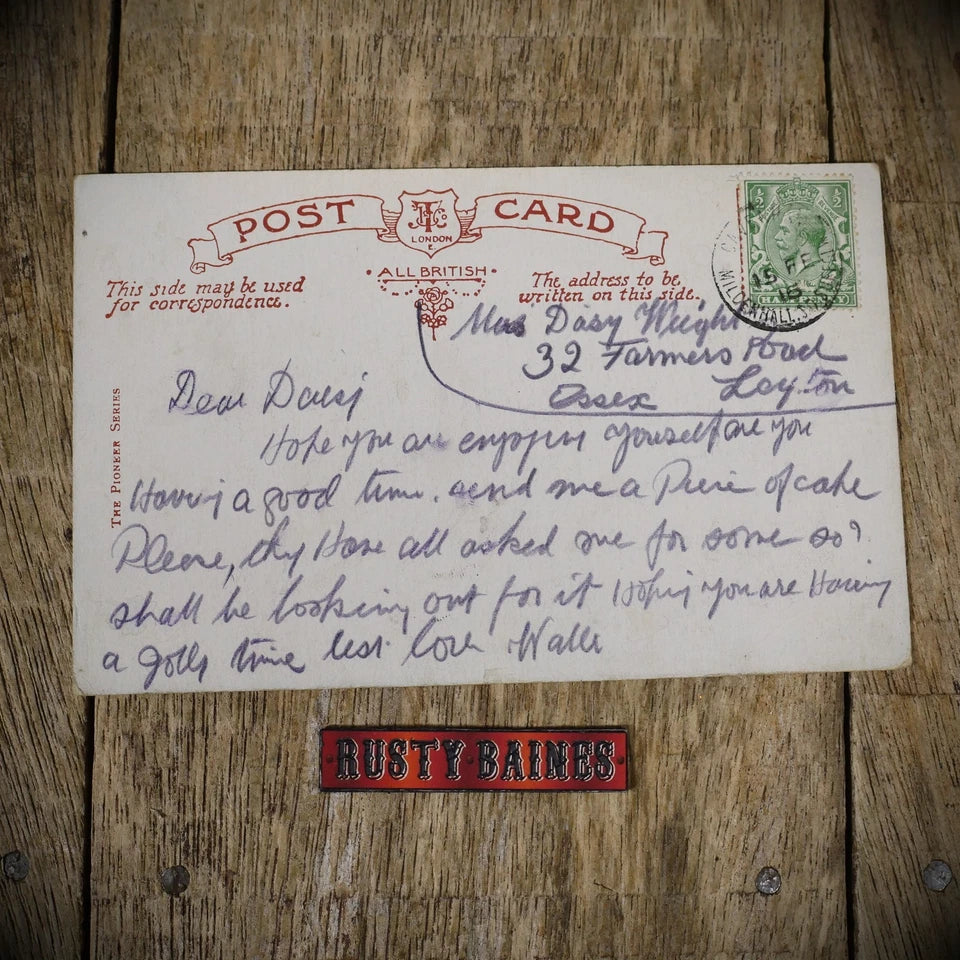 POST CARD
LONDON
E.
ALL BRITISH
This side may be used
for correspondence.
The address to be
written on this side.
THE PIONEER SERIES
½ ½
15 FE
15
MILDENHALL. S
Daisy Wright
32 Farmers Road
Essex Leyton
Dear Daisy
Hope you are enjoying yourself are you
Having a good time. send me a Piece of cake
Please, they Have all asked me for some so
shall be looking out for it Hoping you are Having
a jolly time best love
RUSTY BAINES